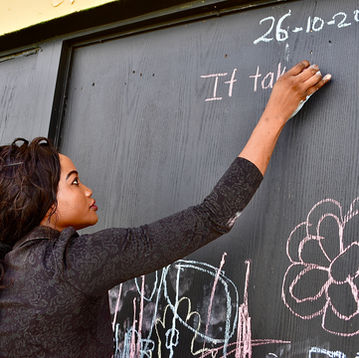 26-10-2
It tal